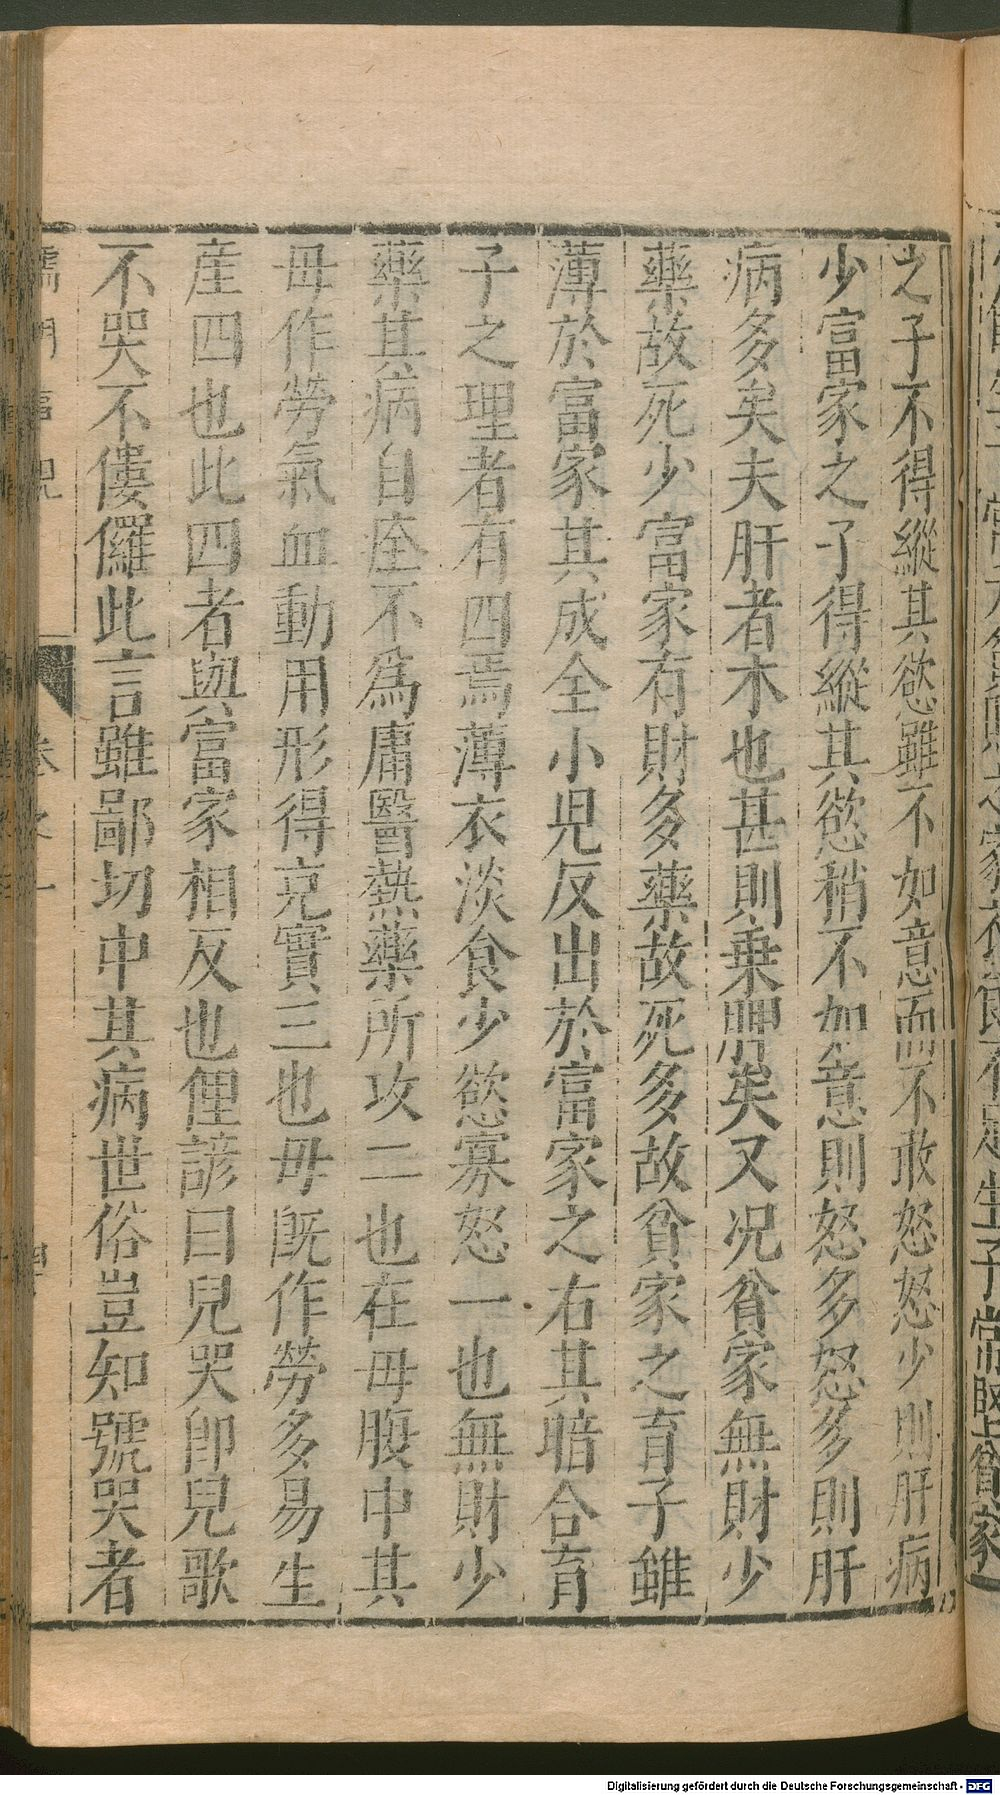 之子不得縱其慾雖不如意而不敢怒怒少則肝病
少富家之子得縱其慾稍不如意則怒多怒多則肝
病多矣夫肝者木也甚則乗脾矣又况貧家無財少
藥故死少富家有財多藥故死多故貧家之育子雖
薄於富家其成全小児反出於富家之右其暗合育
子之理者有四焉薄衣淡食少慾寡怒一也無財少
藥其病自痊不為庸醫熱藥所攻二也在母腹中其
母作勞氣血動用形得充實三也母既作勞多易生
產四也此四者與富家相反也俚諺曰兒哭即兒歌
不哭不僂儸此言雖鄙切中其病世俗豈知號哭者
卷之一
生子常堅貧家
Digitalisierung gefördert durch die Deutsche Forschungsgemeinschaft - DFG